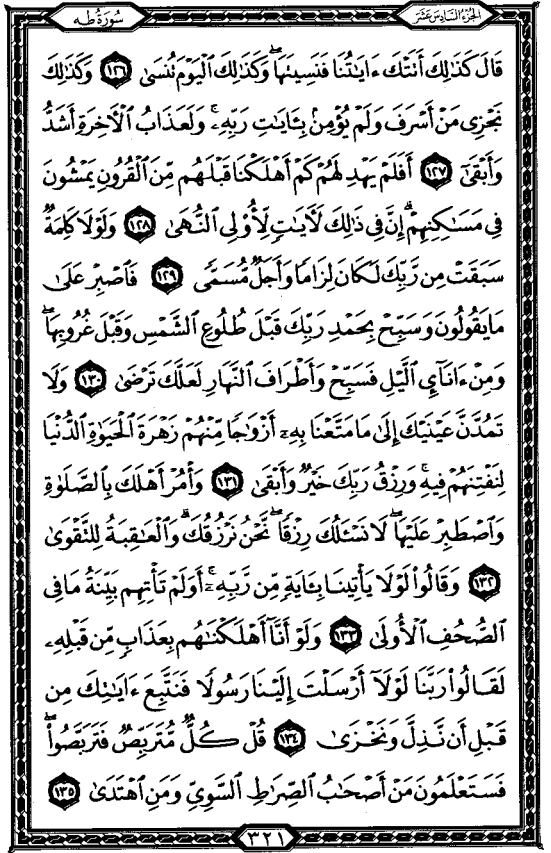 سُورَةُ طه
الجُزءُ السَّادِسَ عَشَرَ
قَالَ كَذَٰلِكَ أَتَتْكَ ءَايَٰتُنَا فَنَسِيتَهَا ۖ وَكَذَٰلِكَ ٱلْيَوْمَ تُنسَىٰ ١٢٦ وَكَذَٰلِكَ
نَجْزِى مَنْ أَسْرَفَ وَلَمْ يُؤْمِنۢ بِـَٔايَٰتِ رَبِّهِۦ ۚ وَلَعَذَابُ ٱلْأَخِرَةِ أَشَدُّ
وَأَبْقَىٰٓ ١٢٧ أَفَلَمْ يَهْدِ لَهُمْ كَمْ أَهْلَكْنَا قَبْلَهُم مِّنَ ٱلْقُرُونِ يَمْشُونَ
فِى مَسَٰكِنِهِمْ ۗ إِنَّ فِى ذَٰلِكَ لَأَيَٰتٍ لِّأُو۟لِى ٱلنُّهَىٰ ١٢٨ وَلَوْلَا كَلِمَةٌ
سَبَقَتْ مِن رَّبِّكَ لَكَانَ لِزَامًا وَأَجَلٌ مُّسَمًّى ١٢٩ فَٱصْبِرْ عَلَىٰ
مَا يَقُولُونَ وَسَبِّحْ بِحَمْدِ رَبِّكَ قَبْلَ طُلُوعِ ٱلشَّمْسِ وَقَبْلَ غُرُوبِهَا ۖ
وَمِنْ ءَانَآئِ ٱلَّيْلِ فَسَبِّحْ وَأَطْرَافَ ٱلنَّهَارِ لَعَلَّكَ تَرْضَىٰ ١٣٠ وَلَا
تَمُدَّنَّ عَيْنَيْكَ إِلَىٰ مَا مَتَّعْنَا بِهِۦٓ أَزْوَٰجًا مِّنْهُمْ زَهْرَةَ ٱلْحَيَوٰةِ ٱلدُّنْيَا
لِنَفْتِنَهُمْ فِيهِ ۚ وَرِزْقُ رَبِّكَ خَيْرٌ وَأَبْقَىٰ ١٣١ وَأْمُرْ أَهْلَكَ بِٱلصَّلَوٰةِ
وَٱصْطَبِرْ عَلَيْهَا ۖ لَا نَسْـَٔلُكَ رِزْقًا ۖ نَّحْنُ نَرْزُقُكَ ۗ وَٱلْعَٰقِبَةُ لِلتَّقْوَىٰ
١٣٢ وَقَالُوا۟ لَوْلَا يَأْتِينَا بِـَٔايَةٍ مِّن رَّبِّهِۦٓ ۚ أَوَلَمْ تَأْتِهِم بَيِّنَةُ مَا فِى
ٱلصُّحُفِ ٱلْأُولَىٰ ١٣٣ وَلَوْ أَنَّآ أَهْلَكْنَٰهُم بِعَذَابٍ مِّن قَبْلِهِۦ
لَقَالُوا۟ رَبَّنَا لَوْلَآ أَرْسَلْتَ إِلَيْنَا رَسُولًا فَنَتَّبِعَ ءَايَٰتِكَ مِن
قَبْلِ أَن نَّذِلَّ وَنَخْزَىٰ ١٣٤ قُلْ كُلٌّ مُّتَرَبِّصٌ فَتَرَبَّصُوا۟ ۖ
فَسَتَعْلَمُونَ مَنْ أَصْحَٰبُ ٱلصِّرَٰطِ ٱلسَّوِىِّ وَمَنِ ٱهْتَدَىٰ ١٣٥
٣٢١